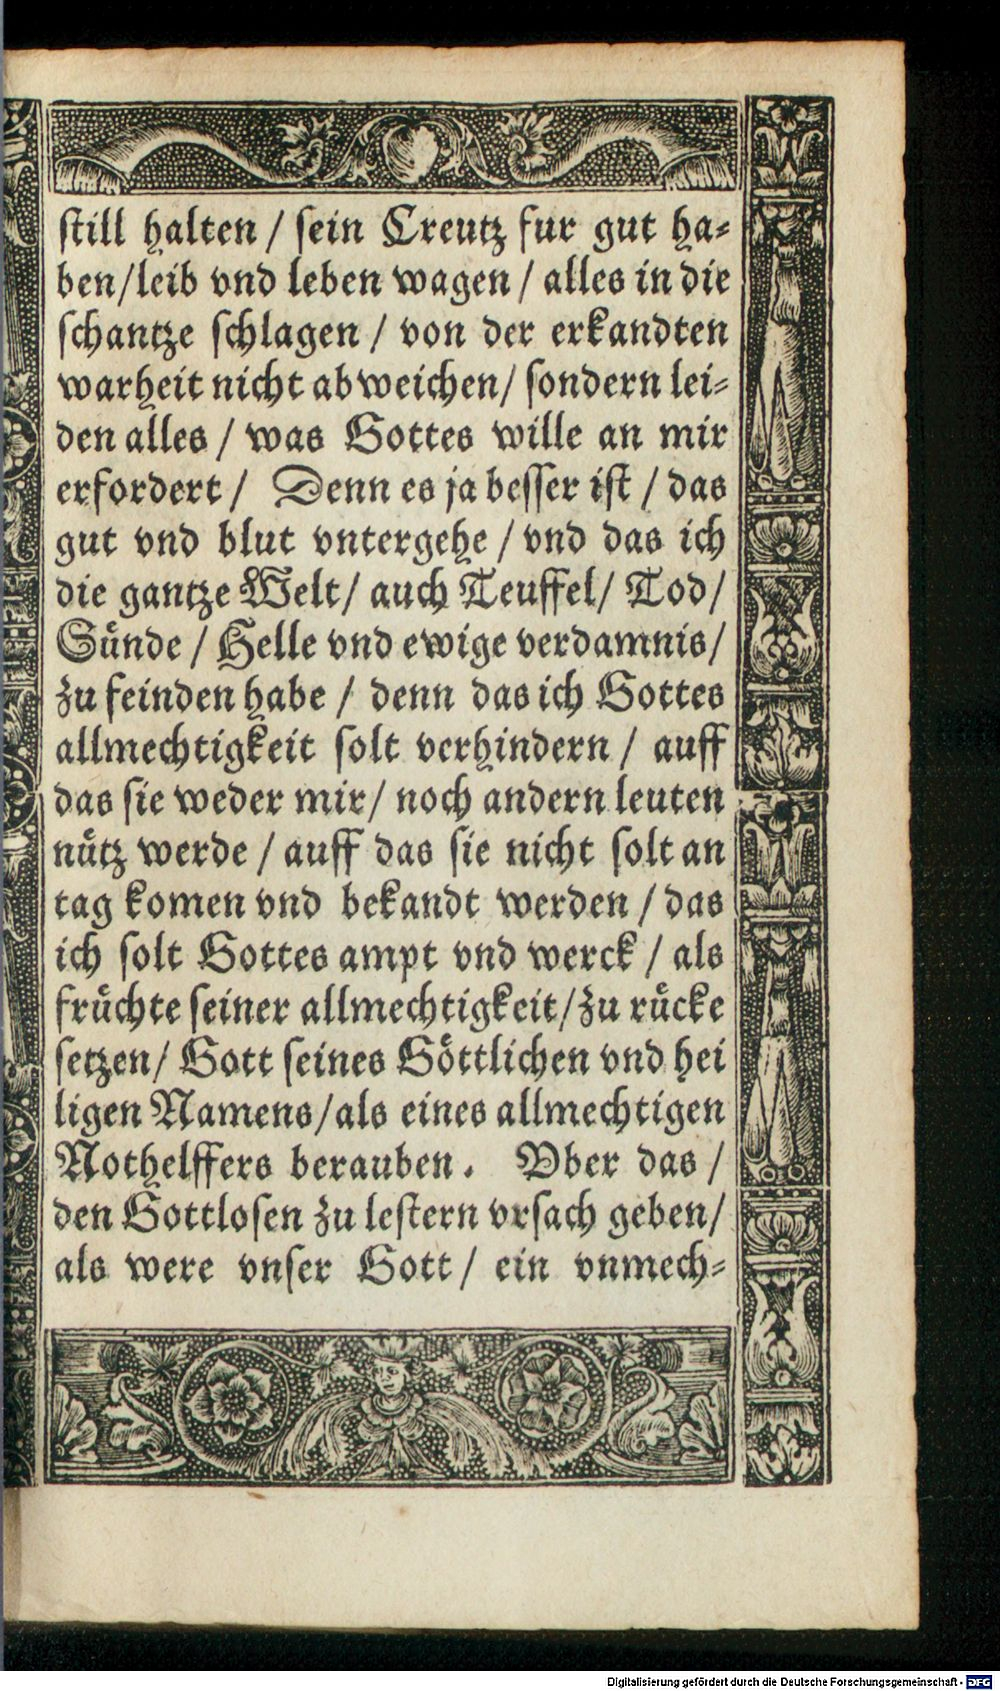 still halten / sein Creutz fur gut ha⸗
ben/leib vnd leben wagen / alles in die
schantze schlagen / von der erkandten
warheit nicht abweichen/ sondern lei⸗
den alles / was Gottes wille an mir
erfordert / Denn es ja besser ist / das
gut vnd blut vntergehe / vnd das ich
die gantze Welt/ auch Teuffel/ Tod/
Sůnde / Helle vnd ewige verdamnis/
zu feinden habe / denn das ich Gottes
allmechtigkeit solt verhindern / auff
das sie weder mir/ noch andern leuten
nůtz werde / auff das sie nicht solt an
tag komen vnd bekandt werden / das
ich solt Gottes ampt vnd werck / als
frůchte seiner allmechtigkeit/zu růcke
setzen/ Gott seines Göttlichen vnd hei
ligen Namens/als eines allmechtigen
Nothelffers berauben. Vber das /
den Gottlosen zu lestern vrsach geben/
als were vnser Gott/ ein vnmech⸗
Digitalisierung gefördert durch die Deutsche Forschungsgemeinschaft - DFG